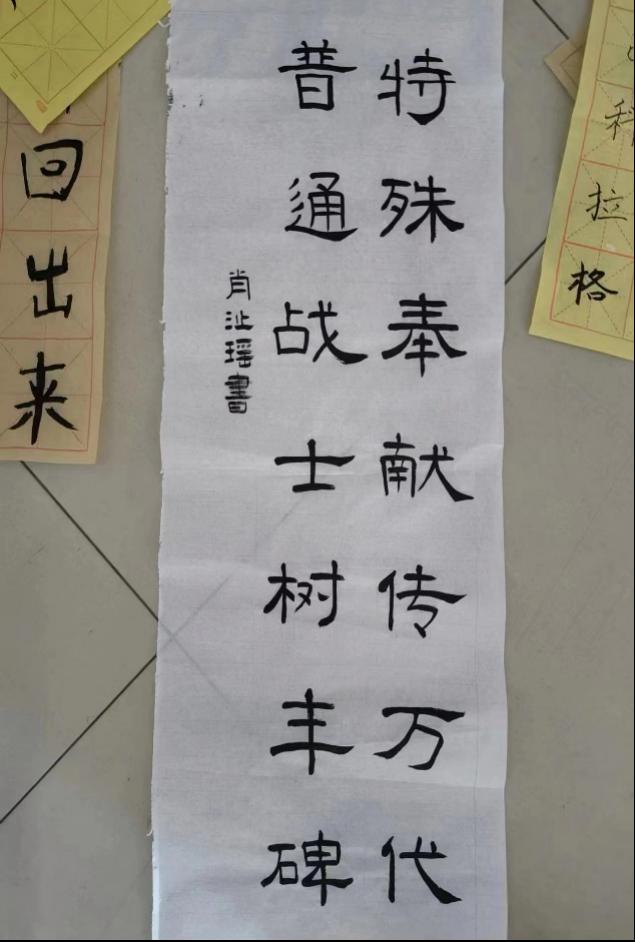 特殊奉献传万代
普通战士树丰碑
肖沚瑶書
科拉格
回出来